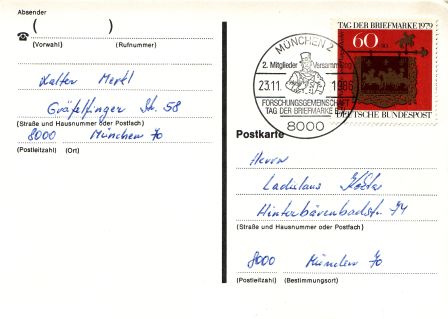 Absender
☎ ( )
(Vorwahl) (Rufnummer)
Walter Merkl
Gräfelfinger Str. 58
(Straße und Hausnummer oder Postfach)
8000 München 70
(Postleitzahl) (Ort)
MÜNCHEN 2
2. Mitglieder Versammlung
23.11. 1986
FORSCHUNGSGEMEINSCHAFT
TAG DER BRIEFMARKE
8000
TAG DER BRIEFMARKE 1979
60
DEUTSCHE BUNDESPOST
Postkarte
Herrn
Ladislaus
Hinterbärenbadstr. 74
(Straße und Hausnummer oder Postfach)
8000 München 70
(Postleitzahl) (Bestimmungsort)